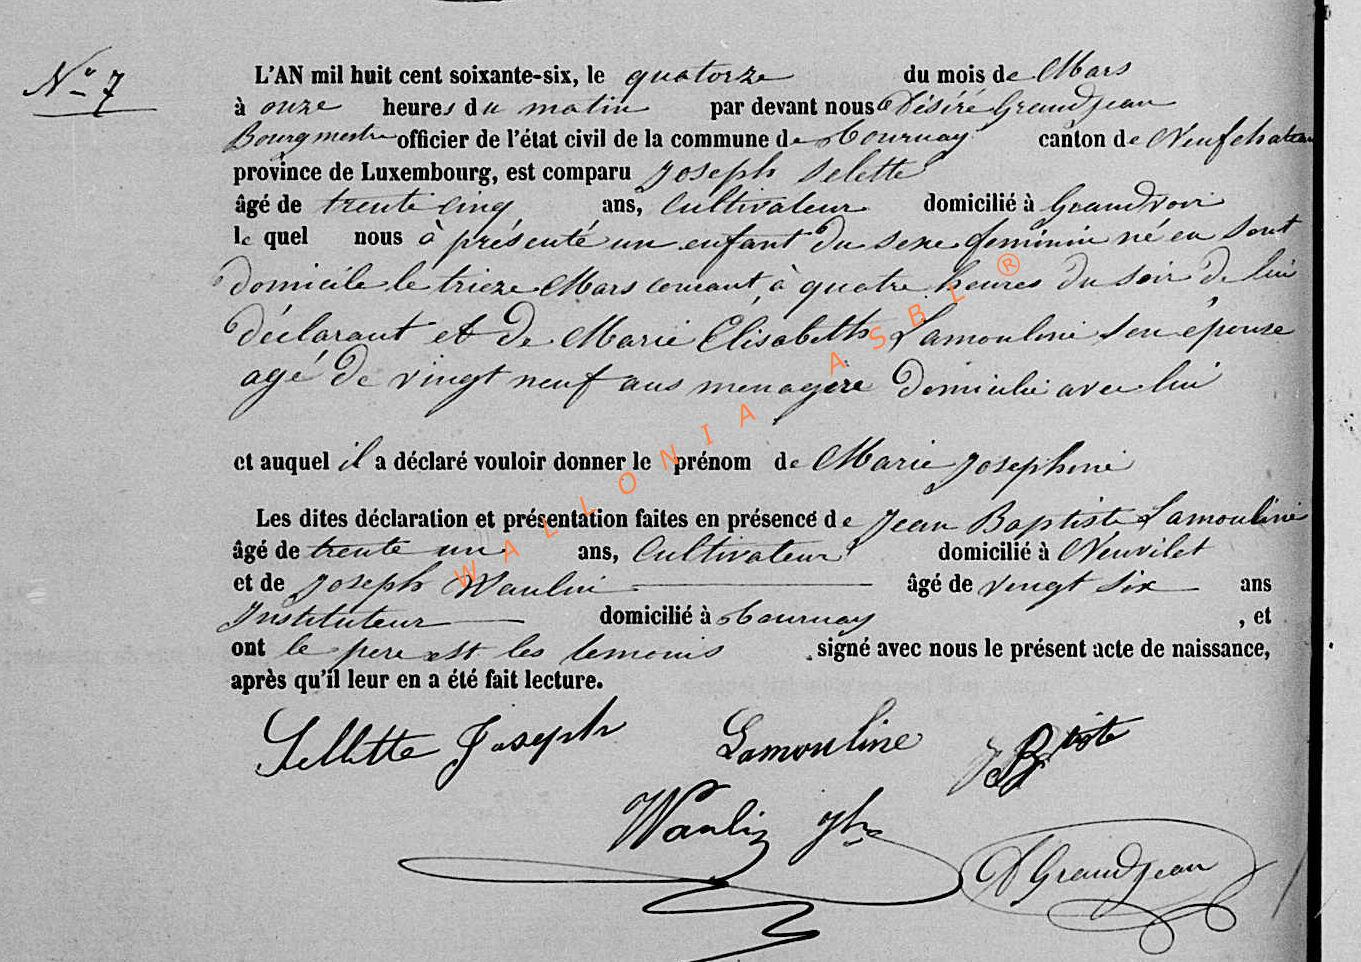 N° 7
L'AN mil huit cent soixante-six, le quatorze du mois de Mars
à onze heures du matin par devant nous Désiré Grandjean
Bourgmestre officier de l'état civil de la commune de Tournay canton de Neufchateau
province de Luxembourg, est comparu Joseph Selette
âgé de trente cinq ans, Cultivateur domicilié à Grandvoir
le quel nous à présenté un enfant du sexe feminin né en sont
domicile le trieze Mars courant à quatre heures du soir de lui
déclarant et de Marie Elisabeth Lamouline son épouse
agé de vingt neuf ans menagère domicilié avec lui
et auquel il a déclaré vouloir donner le prénom de Marie Josephine
Les dites déclaration et présentation faites en présence de Jean Baptiste Lamouline
âgé de trente un ans, Cultivateur domicilié à Neuvilet
et de Joseph Waulin âgé de vingt six ans
Instituteur domicilié à Tournay , et
ont le pere est les temoins signé avec nous le présent acte de naissance,
après qu'il leur en a été fait lecture.
Sellette Joseph Lamouline J Btiste
Waulin Jh
D Grandjean
WALLONIA ASBL ®